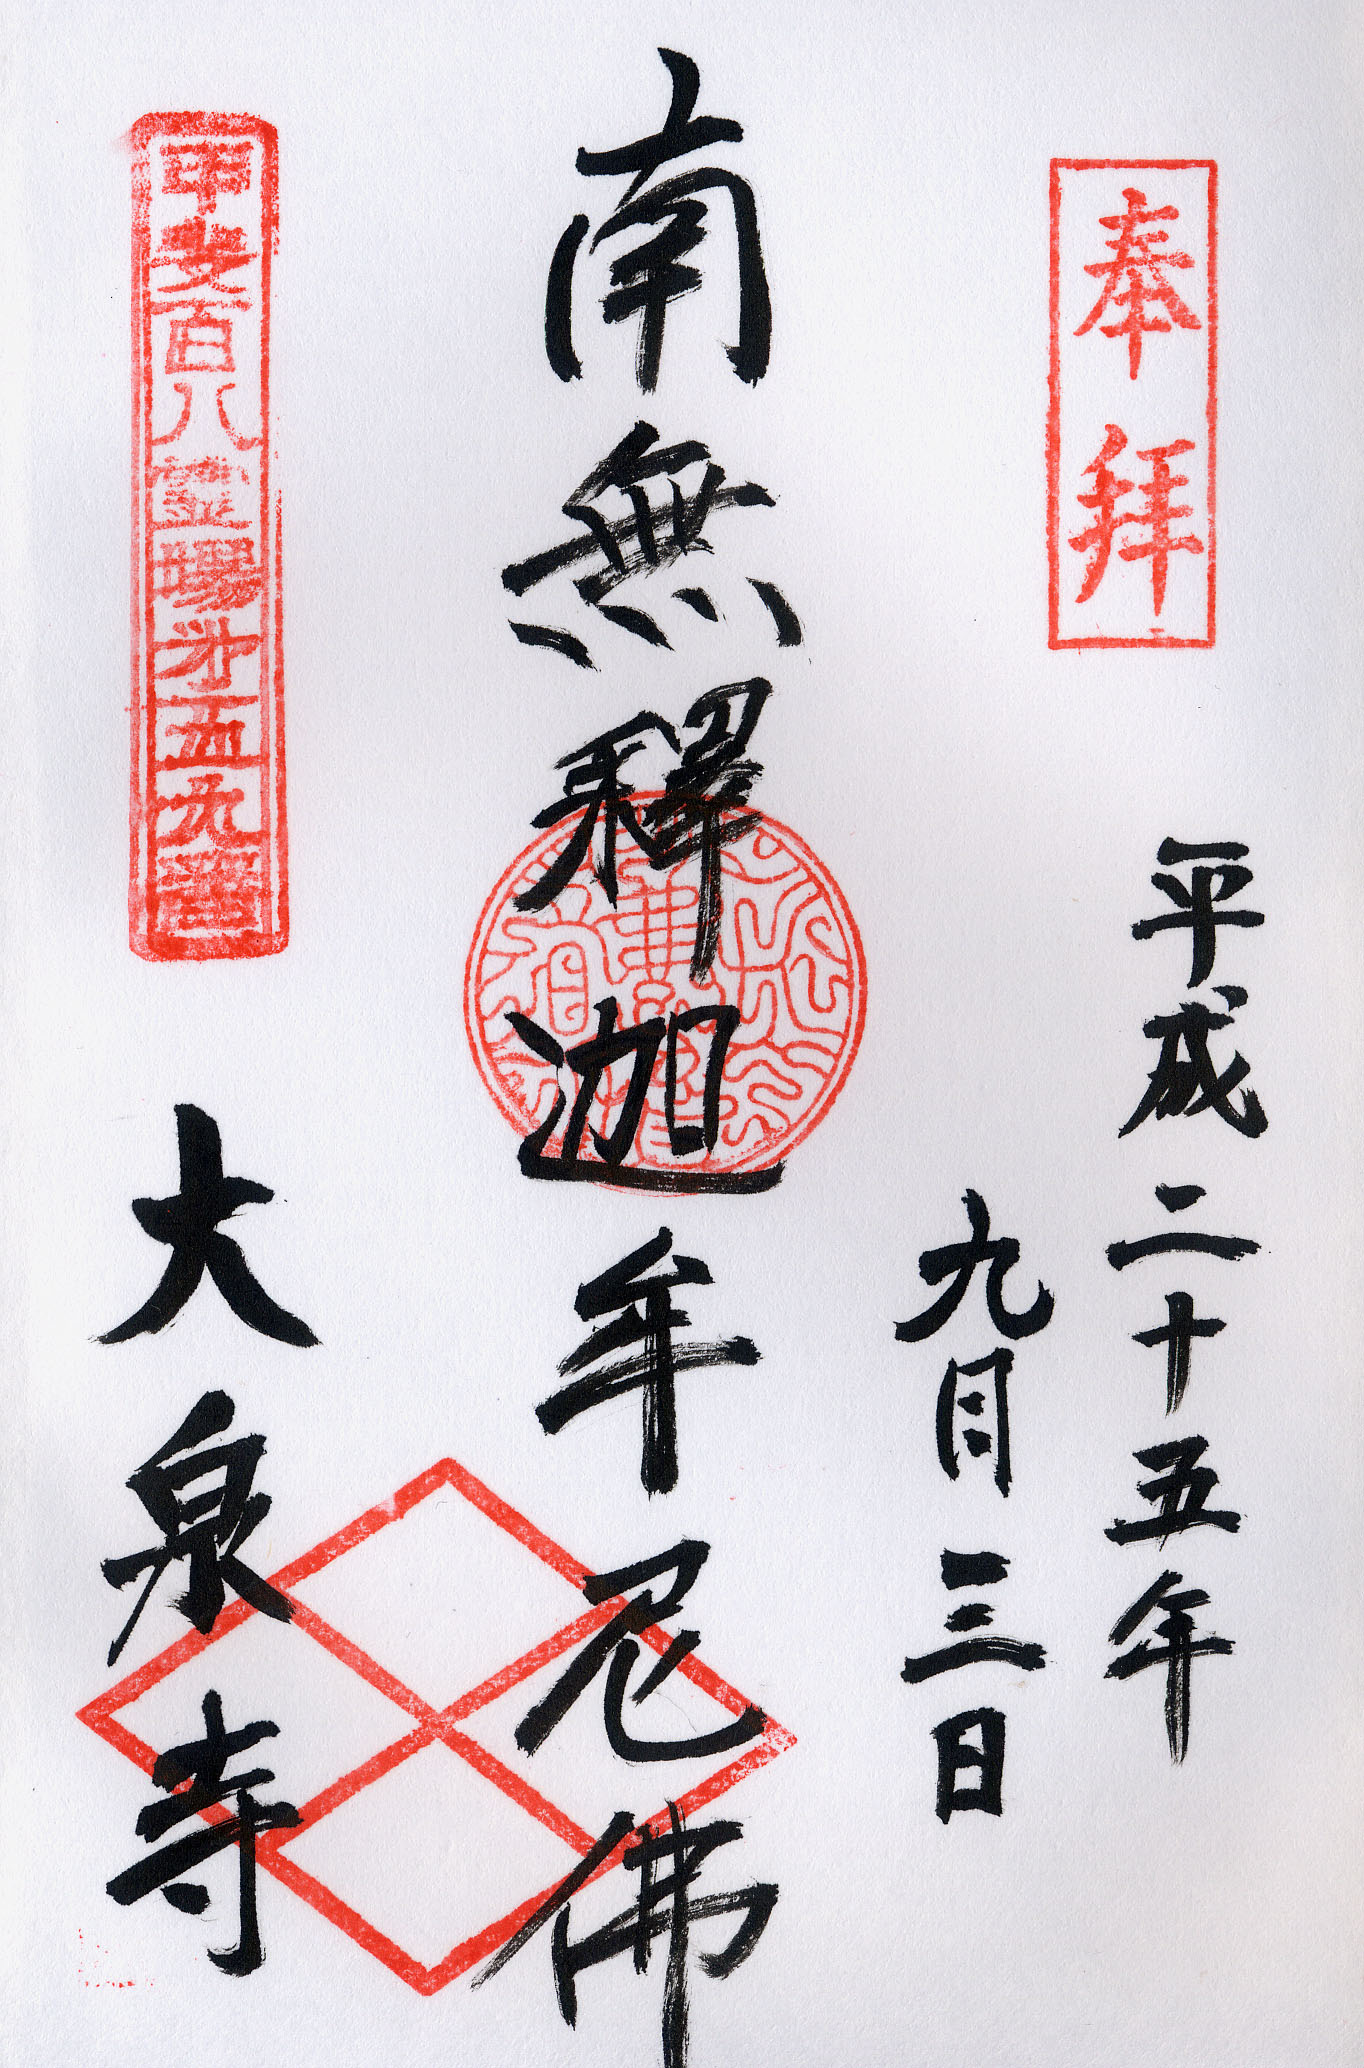 奉拝
平成二十五年
九月三日
南無釋迦牟尼佛
甲斐百八霊場第五九番
大泉寺